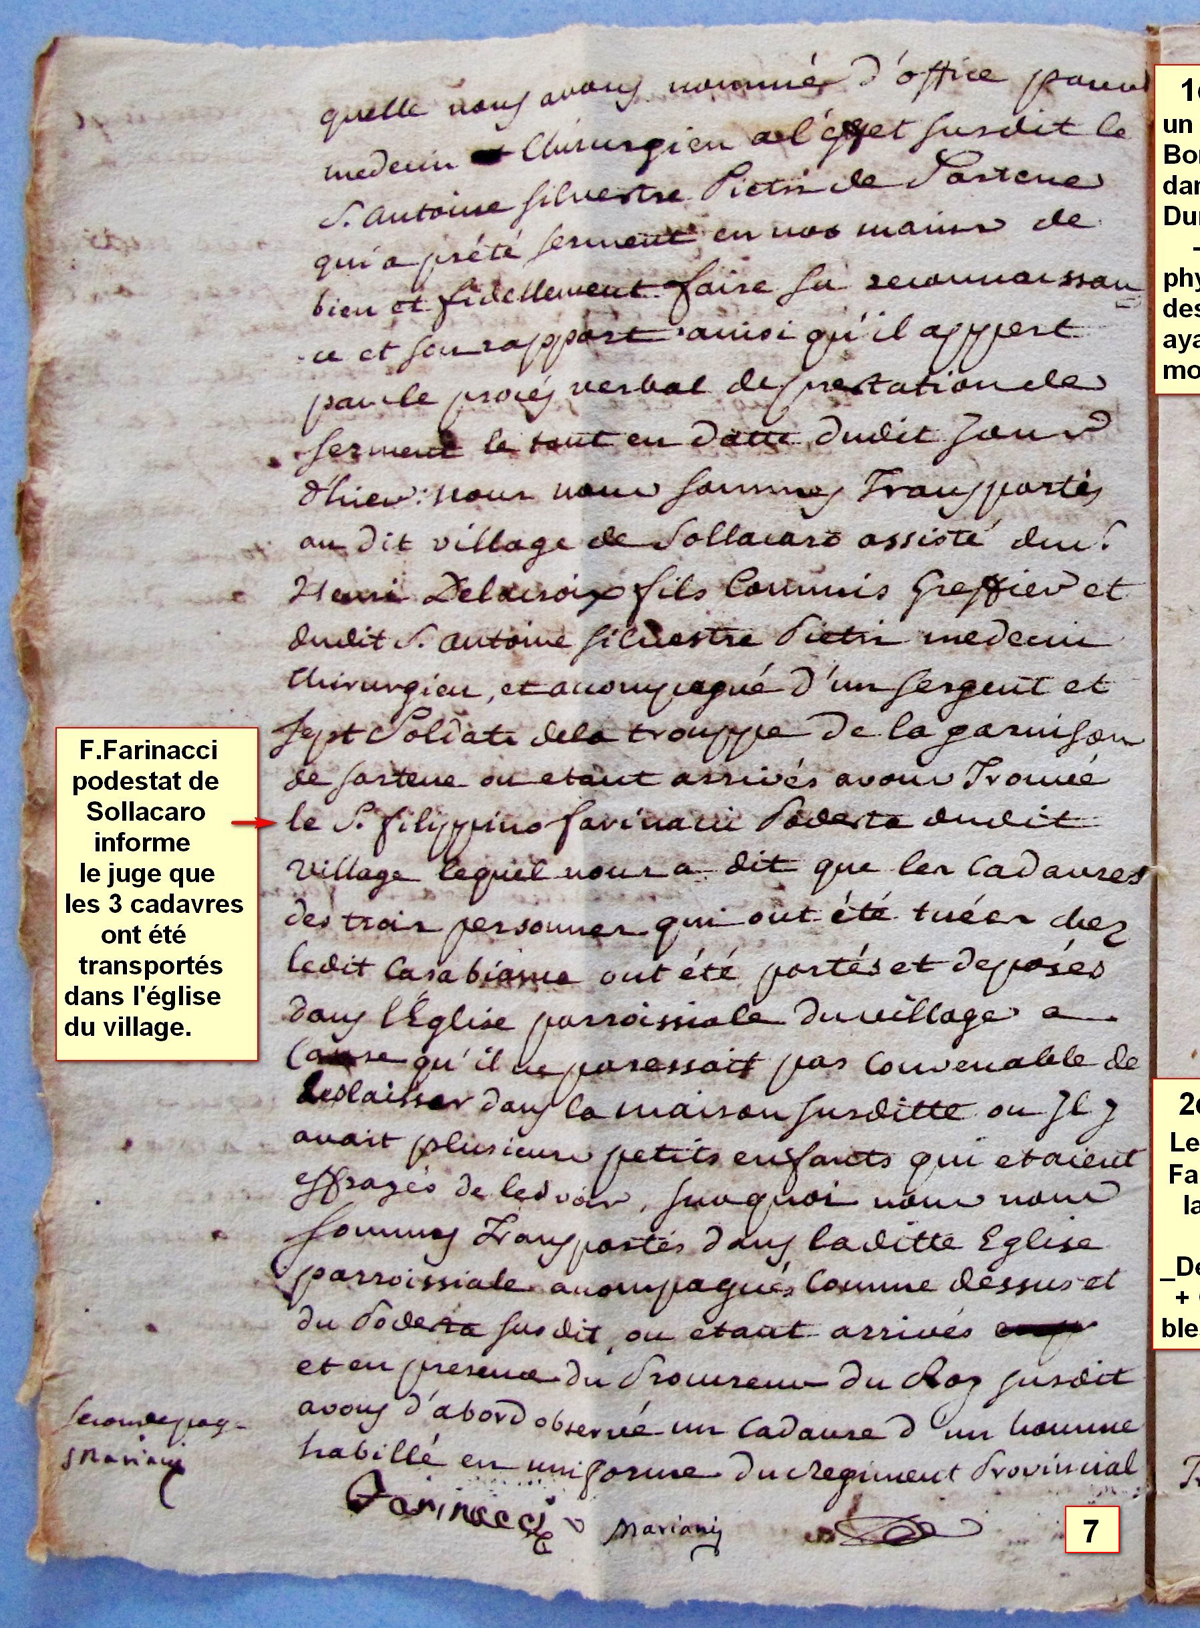 quelle nous avons nommé d'office pour
medecin et Chirurgien a l'effet susdit le
S. Antoine Silvestre Pietri de Sartene
qui a prété serment en nos mains de
bien et fidellement faire sa reconnoissan
ce et son rapport ainsi qu'il appert
par le procés verbal de prestation de
serment le tout en datte dudit jour
d'hier: nous nous sommes Transportés
au dit village de Sollacaro assisté du S.
Henri Delacroix fils Commis Greffier et
dudit S. Antoine Silvestre Pietri medecin
Chirurgien, et acompagné d'un sergent et
sept Soldats de la trouppe de la garnison
de sartene ou etant arrivés avons Trouvé
le S. filippino farinacci Podesta dudit
village lequel nous a dit que les Cadavres
des trois personnes qui ont été tuées chez
ledit Casabianca ont été portés et deposés
dans l'Eglise parroissiale du village a
Cause qu'il ne paressait pas convenable de
les laisser dans la maison susditte ou Il y
avait plusieurs petits enfants qui etaient
effrayés de les voir, surquoi nous nous
sommes Transportés dans laditte Eglise
parroissiale acompagnés Comme dessus et
du Podesta susdit, ou etant arrivés
et en presence du Procureur du Roy susdit
avons d'abord observé un Cadavre d'un homme
habillé en uniforme du Regiment Provincial
seconde pag.
Mariani
Farinacci
Mariani
F.Farinacci
podestat de
Sollacaro
informe
le juge que
les 3 cadavres
ont été
transportés
dans l'église
du village.
7
un
phy
des
aya
mo
2e
Le
Fa
la
_De
+
ble